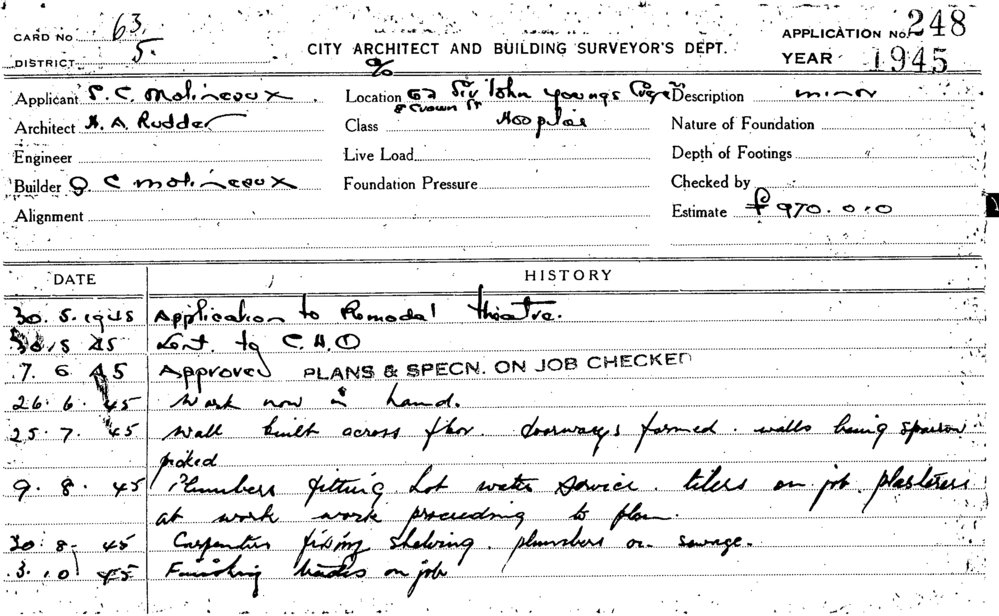 CARD NO 63 APPLICATION No. 248
DISTRICT 5. CITY ARCHITECT AND BUILDING SURVEYOR'S DEPT. YEAR 1945
Applicant S. C. Molineaux Location % 62 Sir John Youngs Description minor
& Crown St
Architect H. A. Rudder Class Hospital Nature of Foundation
Engineer Live Load Depth of Footings
Builder S. C. Molineaux Foundation Pressure Checked by
Alignment Estimate £970.0.0
DATE HISTORY
30. 5. 1945 Application to Remodal theatre.
30. 5 45 Sent to C.H.O
7. 6 45 Approved PLANS & SPECN. ON JOB CHECKED
26. 6. 45 Work now in hand.
25. 7. 45 Wall built across floor. doorways formed. walls being sparrow
picked
9. 8. 45 Plumbers fitting hot water service. tilers on job. plasterers
at work work proceeding to plan.
30. 8. 45 Carpenters fixing shelving. plumbers on sewage.
3. 10 45 Finishing trades on job